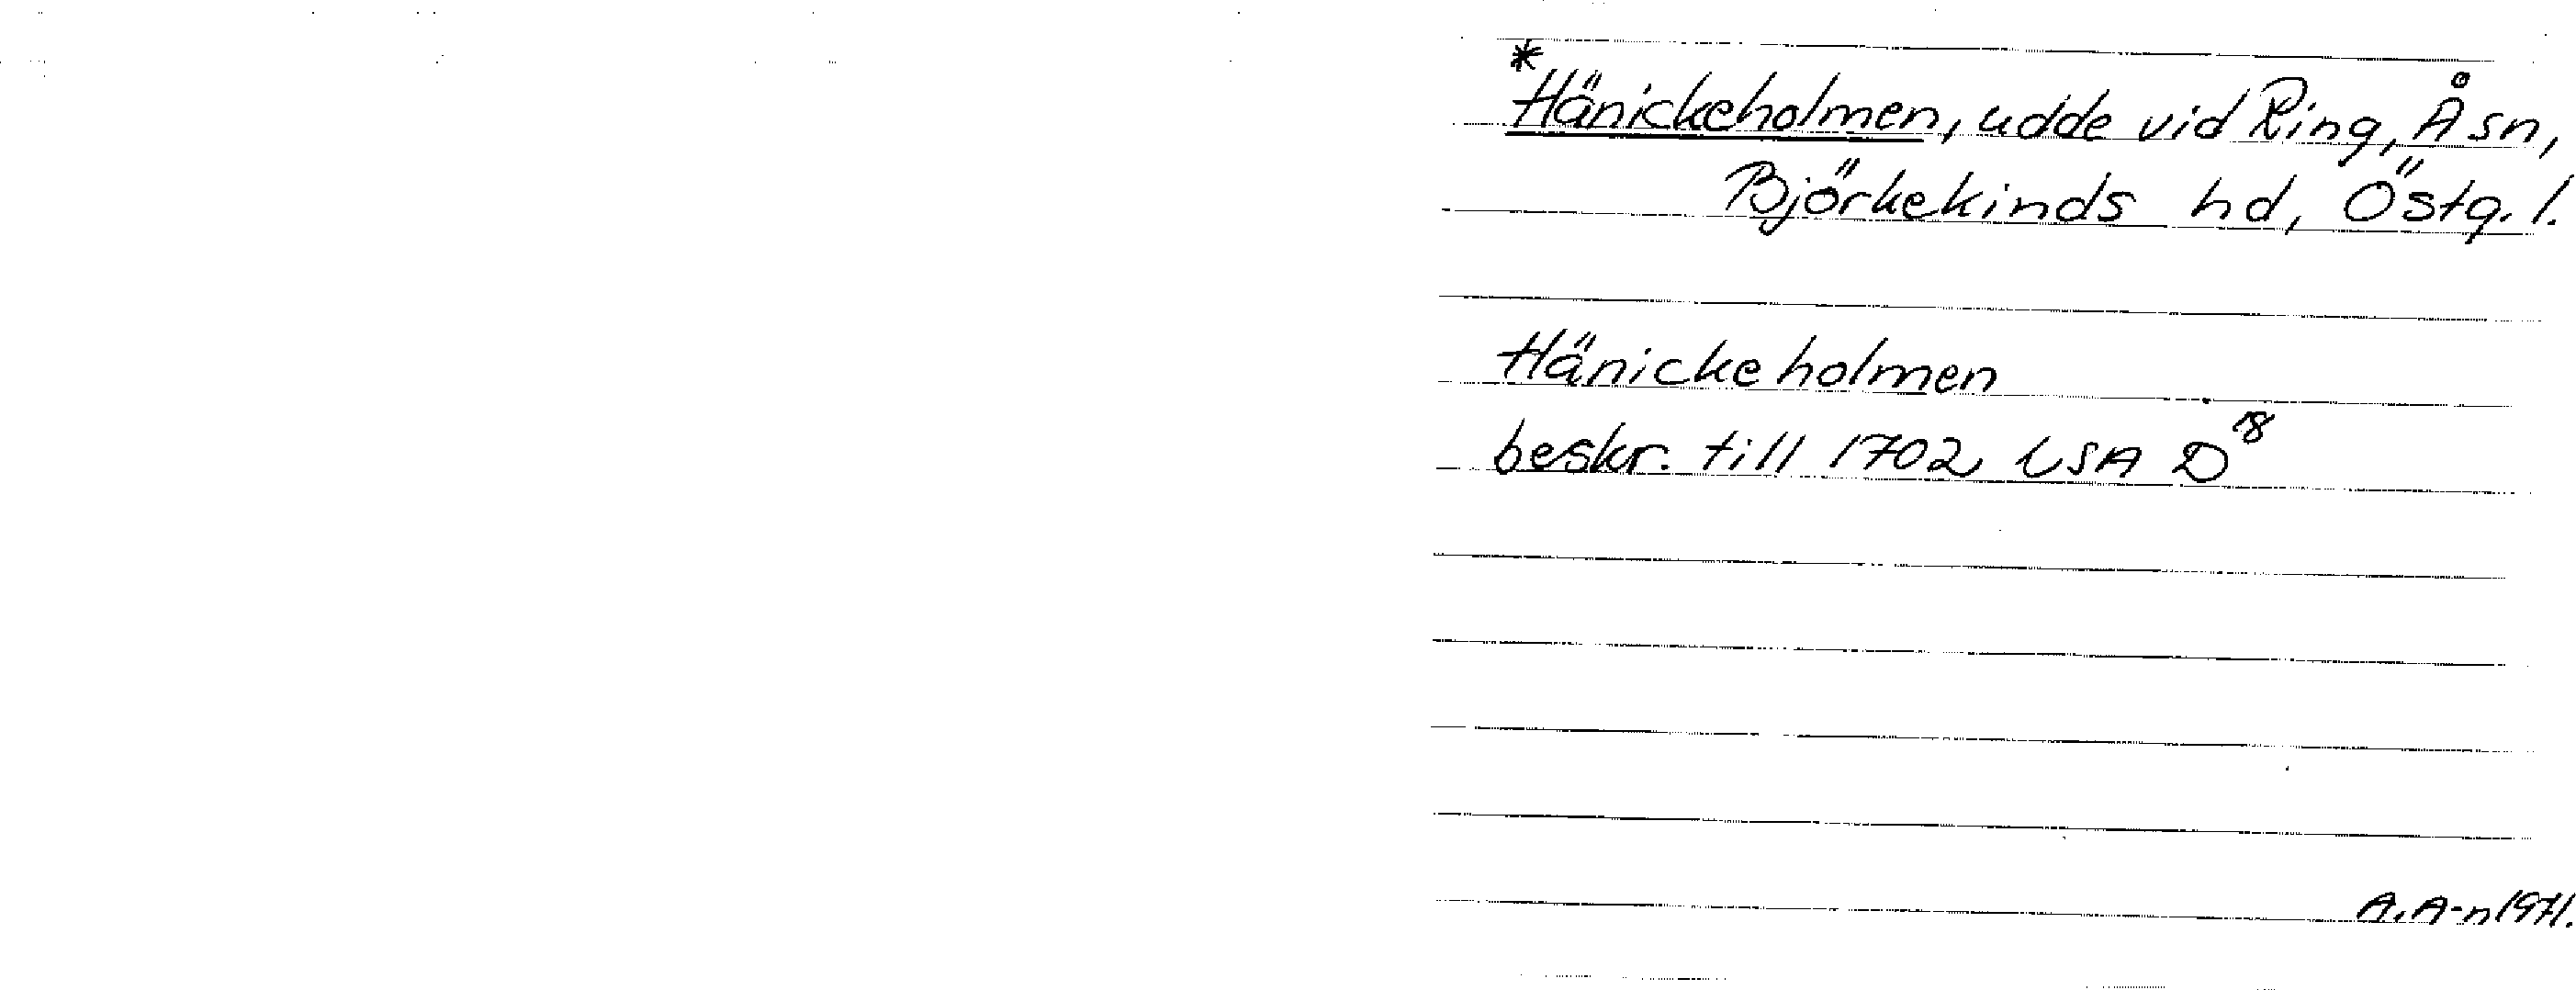 *
Hänickeholmen, udde vid Ring, Å sn,
Björkekinds hd, Östg. l.
Hänickeholmen
beskr. till 1702 LSA D18
A. A-n 1971.